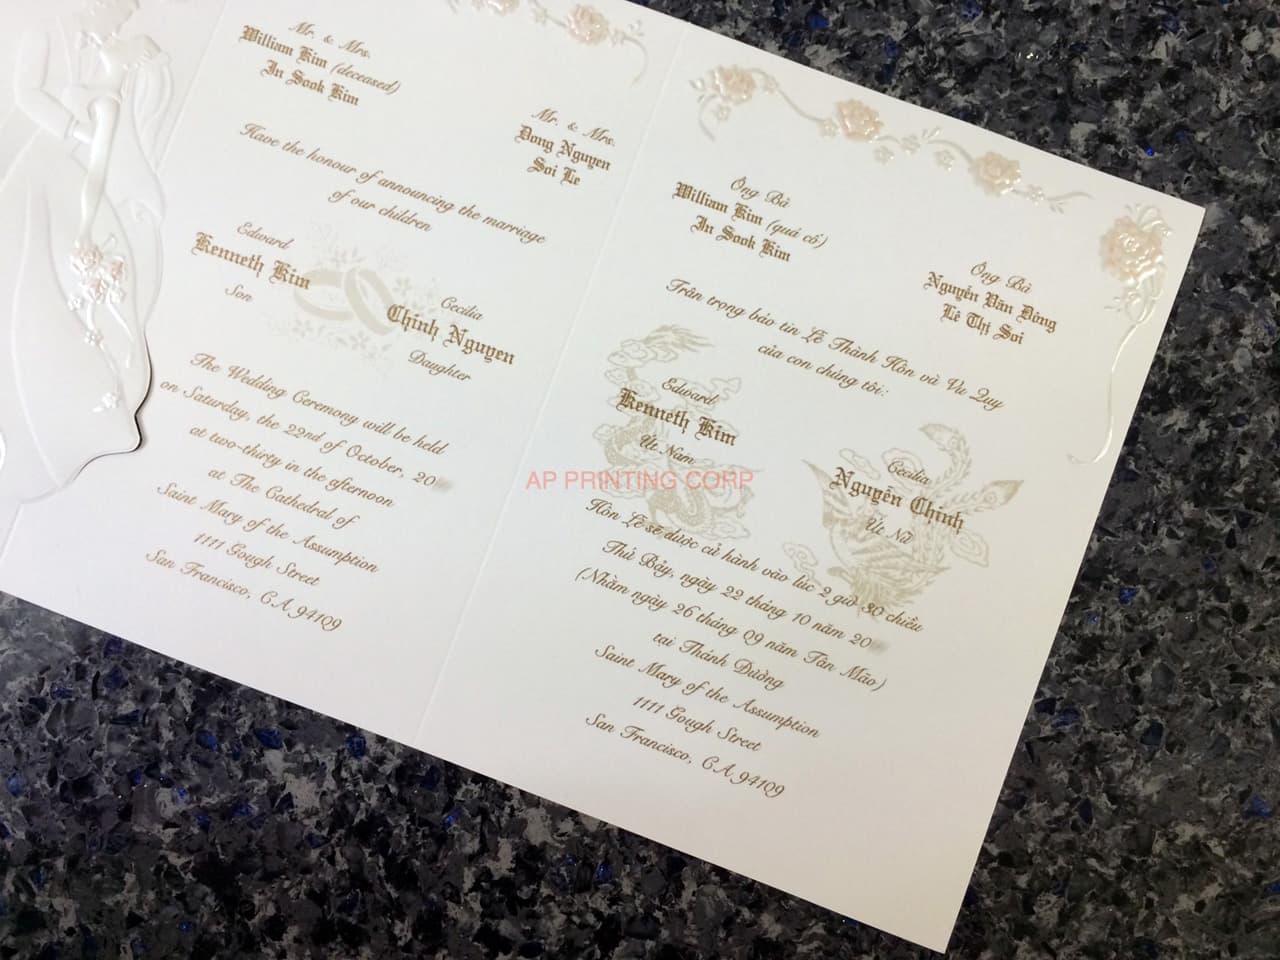 Mr. & Mrs.
William Kim (deceased)
In Sook Kim
Mr. & Mrs.
Dong Nguyen
Soi Le
Have the honour of announcing the marriage
of our children
Edward
Kenneth Kim
Son
Cecilia
Chinh Nguyen
Daughter
The Wedding Ceremony will be held
on Saturday, the 22nd of October, 20
at two-thirty in the afternoon
at The Cathedral of
Saint Mary of the Assumption
1111 Gough Street
San Francisco, CA 94109
Ông Bà
William Kim (quá cố)
In Sook Kim
Ông Bà
Nguyễn Văn Đông
Lê Thị Soi
Trân trọng báo tin Lễ Thành Hôn và Vu Quy
của con chúng tôi:
Edward
Kenneth Kim
Út Nam
Cecilia
Nguyễn Chinh
Út Nữ
Hôn Lễ sẽ được cử hành vào lúc 2 giờ 30 chiều
Thứ Bảy, ngày 22 tháng 10 năm 20
(Nhằm ngày 26 tháng 09 năm Tân Mão)
tại Thánh Đường
Saint Mary of the Assumption
1111 Gough Street
San Francisco, CA 94109
AP PRINTING CORP